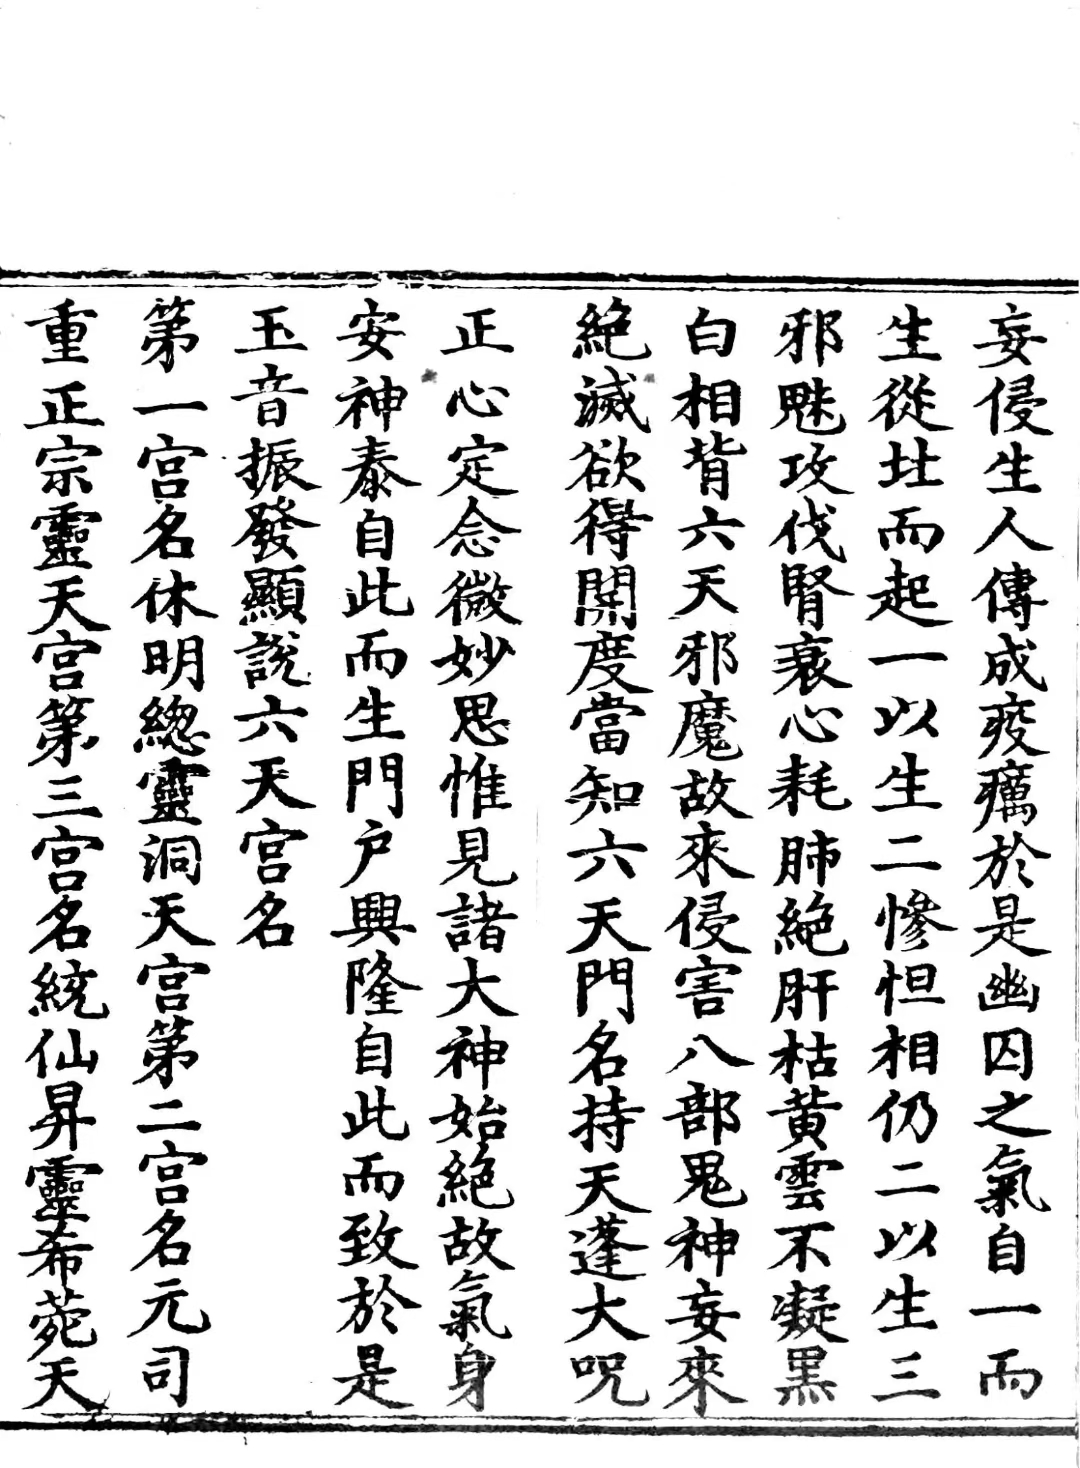 妄侵生人傳成疫癘於是幽囚之氣自一而
生從灶而起一以生二慘怛相仍二以生三
邪魅攻伐腎衰心耗肺絕肝枯黃雲不凝黑
白相背六天邪魔故來侵害八部鬼神妄來
絕滅欲得開度當知六天門名持天蓬大呪
正心定念微妙思惟見諸大神始絕故氣身
安神泰自此而生門戶興隆自此而致於是
玉音振發顯說六天宮名
第一宮名休明總靈洞天宮第二宮名元司
重正宗靈天宮第三宮名統仙昇靈希菀天